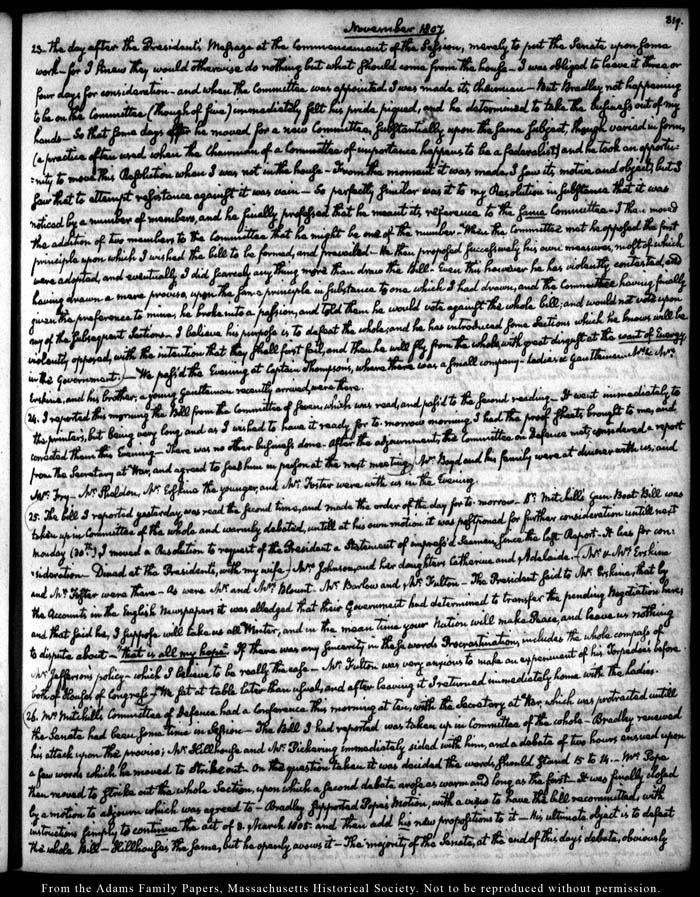 November 1807
319.
23. the day after the President's Message at the Commencement of the Session, merely to put the Senate upon some
work - for I knew they would otherwise do nothing but what should come from the house - I was obliged to leave it three or
four days for consideration - and when the Committee was appointed I was made its chairman - But Bradley not happening
to be on the Committee (though of five) immediately felt his pride piqued, and he determined to take the business out of my
hands - So that some days after he moved for a new Committee, substantially upon the same subject, though varied in form,
(a practice often used when the Chairman of a Committee of importance happens to be a federalist) and he took an opportu-
=nity to move this Resolution when I was not in the house - From the moment it was made, I saw its motive and object, but I
saw that to attempt resistance against it was vain - So perfectly similar was it to my Resolution in substance that it was
noticed by a number of members, and he finally professed that he meant its reference to the same Committee - I then moved
the addition of two members to the Committee that he might be one of the number - When the Committee met he opposed the first
principle upon which I wished the bill to be formed, and prevailed - He then proposed successively his own measures, most of which
were adopted, and eventually I did scarcely any thing more than draw the Bill - Even this however he has violently contested, and
having drawn a mere proviso, upon the same principle in substance to one which I had drawn, and the Committee having finally
given the preference to mine, he broke into a passion, and told them he would vote against the whole bill; and would not vote upon
any of the subsequent Sections. I believe his purpose is to defeat the whole; and he has introduced some Sections which he knows will be
violently opposed, with the intention that they shall first fail, and then he will fly from the whole, with great disgust at the want of Energy
in the Government. - We pass'd the Evening at Captain Thompson's, where there was a small company - Ladies & Gentlemen. Mr. & Mrs.
Erskine, and his brother; a young Gentleman recently arrived, were there.
24. I reported this morning the Bill from the Committee of seven, which was read, and pass'd to the second reading - It went immediately to
the printers, but being very long, and as I wished to have it ready for to-morrow morning I had the proof sheets brought to me, and
corrected them this Evening - There was no other business done - After the adjournment the Committee on Defence met; considered a report
from the Secretary at War, and agreed to see him in person at the next meeting. Mr. Boyd and his family were at dinner with us; and
Mr. Fry - Mr. Sheldon, Mr. Erskine the younger, and Mr. Foster were with us in the Evening
25. The bill I reported yesterday, was read the second time, and made the order of the day for to-morrow. Dr. Mitchill's Gun-Boat Bill was
taken up in Committee of the whole and warmly debated, untill at his own motion it was postponed for further consideration untill next
Monday (30th.) I moved a Resolution to request of the President a Statement of impress'd Seamen, since the last Report - It lies for con-
=sideration - Dined at the President's, with my wife, Mrs. Johnson, and her daughters Catherine and Adelaide - Mr. & Mrs. Erskine
and Mr. Foster were there - As were Mr. and Mrs. Blount - Mr. Barlow and Mr. Fulton - The President said to Mr. Erskine, that by
the Accounts in the English Newspapers it was alledged that their Government had determined to transfer the pending Negotiation here,
and that said he, I suppose will take us all Winter, and in the mean time your Nation will make Peace, and leave us nothing
to dispute about - "that is all my hope." If there was any sincerity in these words Procrastination, includes the whole compass of
Mr. Jefferson's policy - which I believe to be really the case - Mr. Fulton was very anxious to make an experiment of his Torpedoes before
both of Houses of Congress - We sat at table later than usual, and after leaving it I returned immediately home with the ladies.
26. Mr. Mitchill's Committee of Defence had a Conference this morning at ten, with the Secretary at War, which was protracted untill
the Senate had been some time in Session - The Bill I had reported was taken up in Committee of the whole - Bradley renewed
his attack upon the proviso; Mr. Hillhouse and Mr. Pickering immediately sided with him, and a debate of two hours ensued upon
a few words which he moved to strike out - On the question taken it was decided the words should stand 15 to 14. - Mr. Pope
then moved to strike out the whole Section, upon which a second debate arose as warm and long as the first - It was finally closed
by a motion to adjourn which was agreed to - Bradley supported Pope's Motion, with a view to have the bill recommitted, with
instructions simply to continue the act of 3. March 1805. and then add his new propositions to it - His ultimate object is to defeat
the whole Bill - Hillhouse's the same, but he openly avows it - The majority of the Senate, at the end of this day's debate, obviously
From the Adams Family Papers, Massachusetts Historical Society. Not to be reproduced without permission.